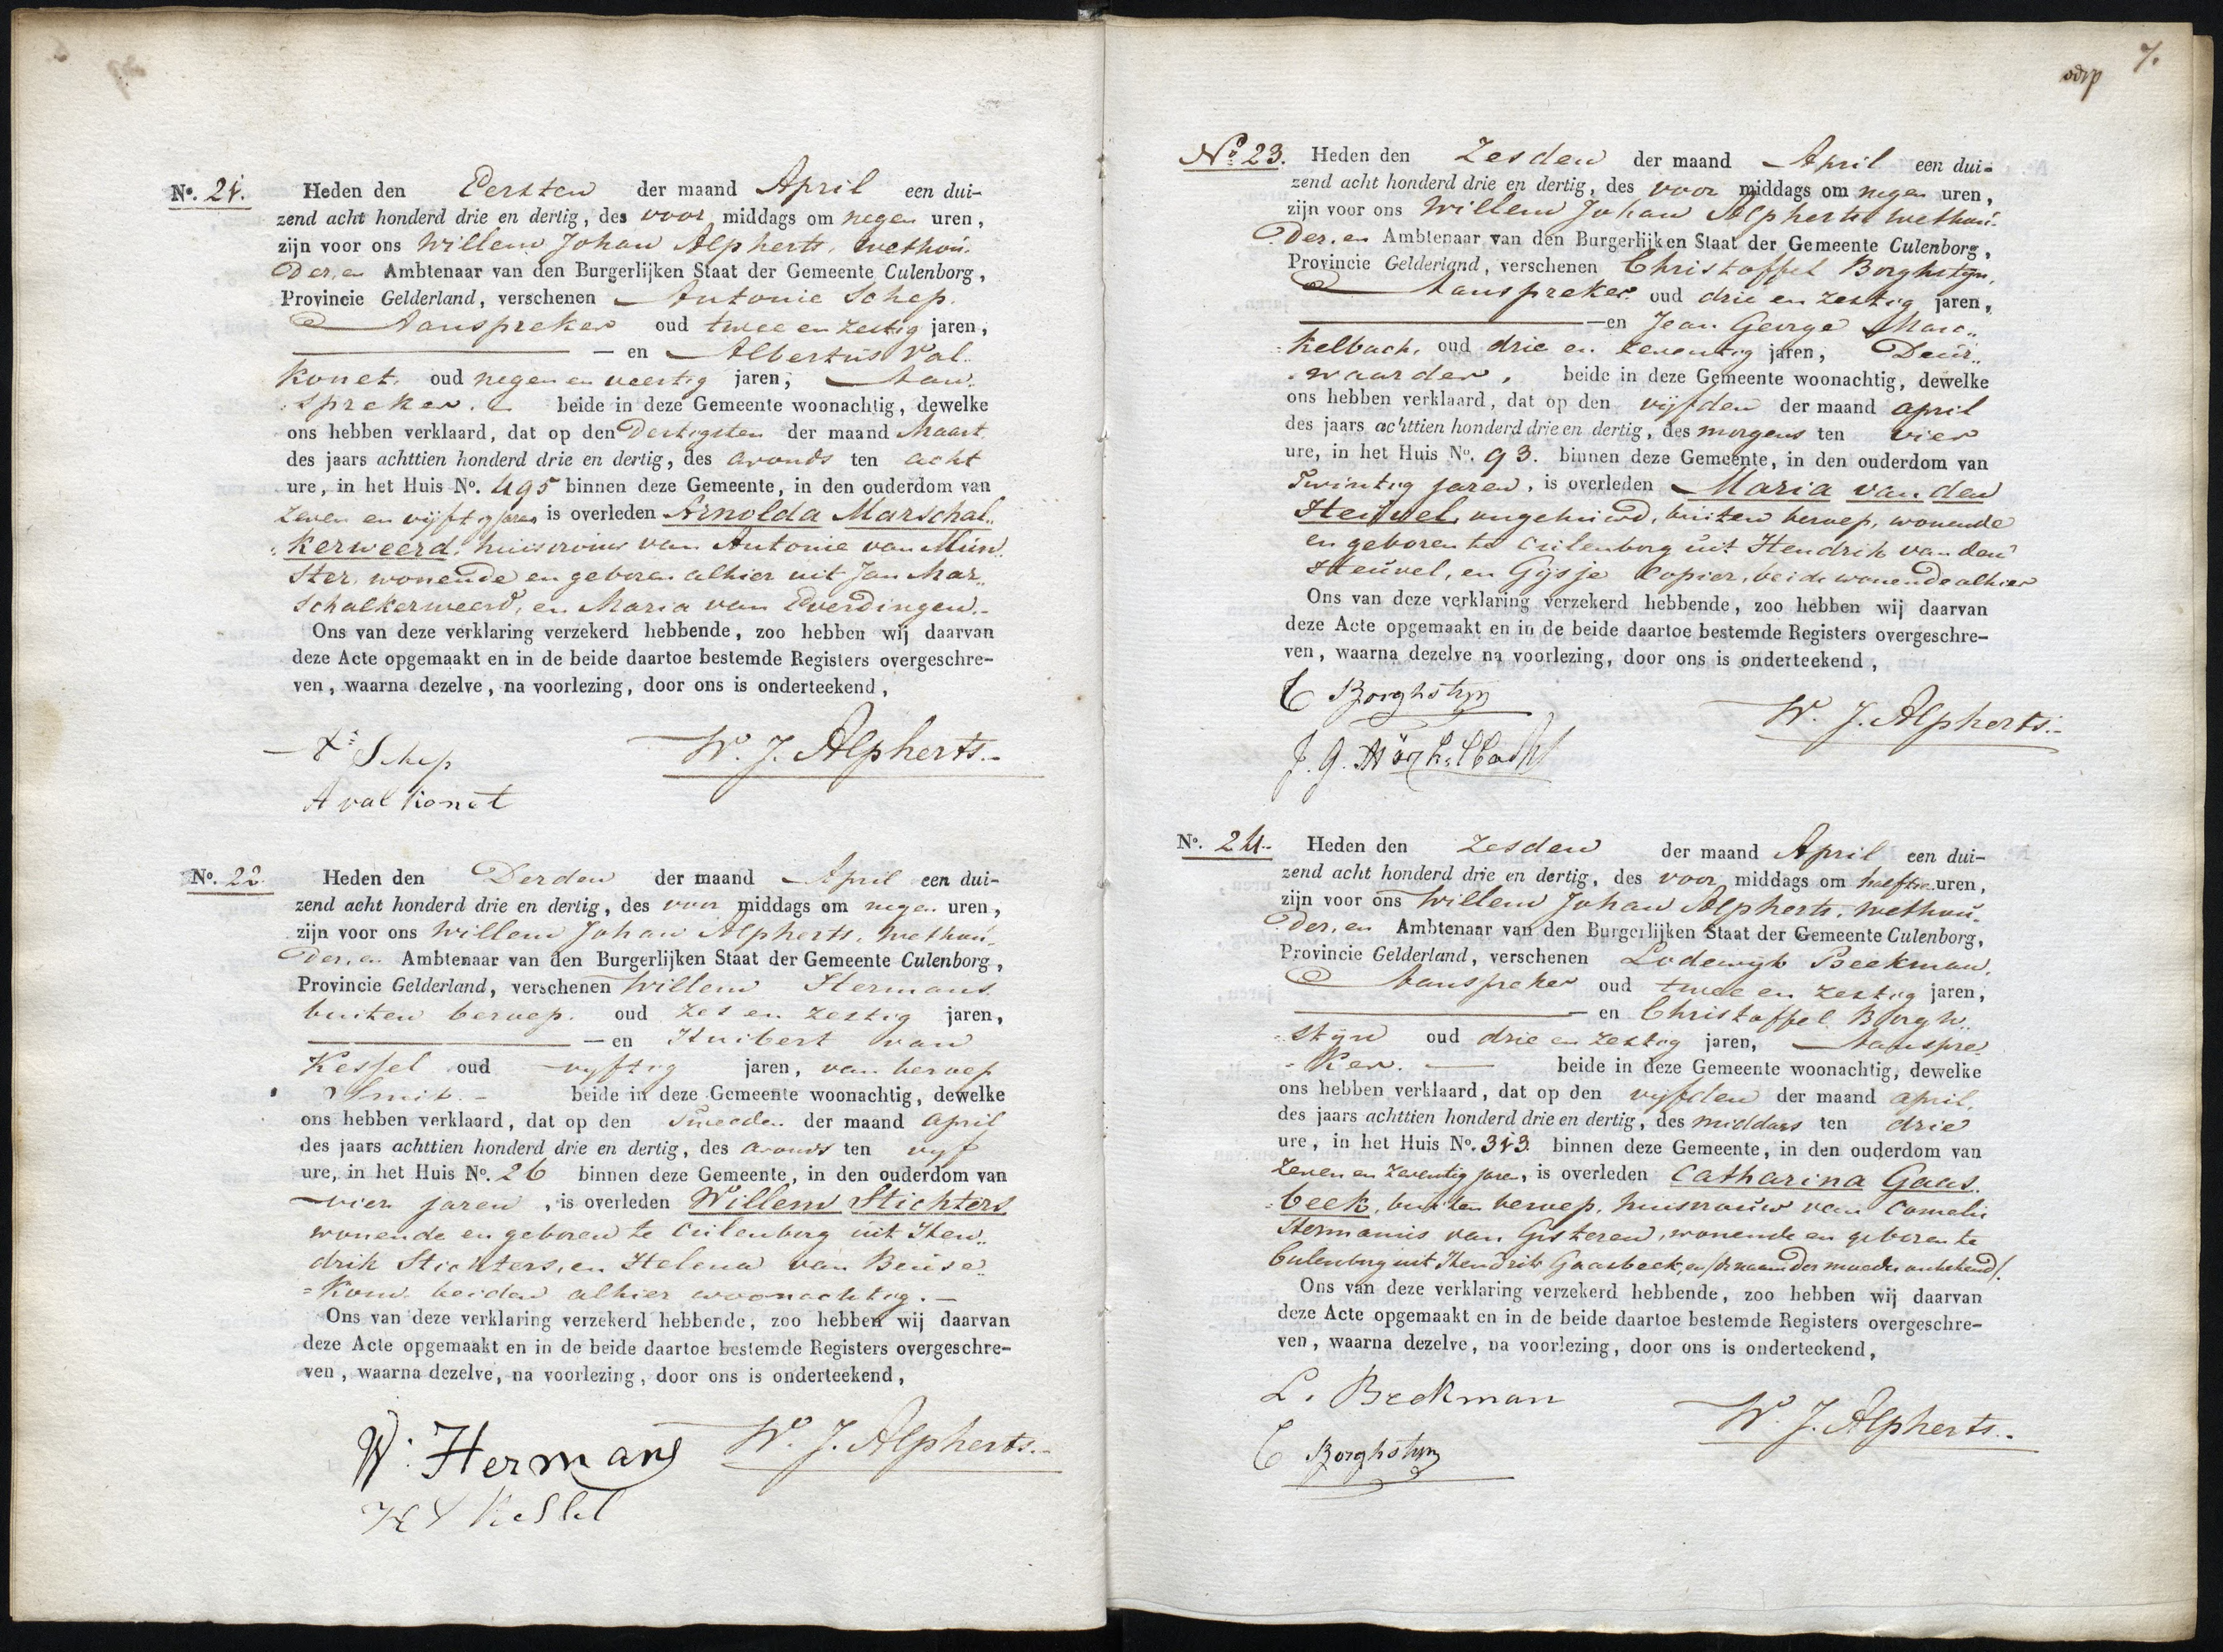 N°. 21. Heden den Eersten der maand April een dui-
zend acht honderd drie en dertig, des voor middags om negen uren,
zijn voor ons Willem Johan Alpherts, wethou-
der, en Ambtenaar van den Burgerlijken Staat der Gemeente Culenborg,
Provincie Gelderland, verschenen Antonie Schep.
Aanspreker oud twee en zestig jaren,
— en Albertus Val-
konet, oud negen en veertig jaren, Aan-
spreker. beide in deze Gemeente woonachtig, dewelke
ons hebben verklaard, dat op den Dertigsten der maand Maart
des jaars achttien honderd drie en dertig, des avonds ten acht
ure, in het Huis N°. 495 binnen deze Gemeente, in den ouderdom van
zeven en vijftig jaren is overleden Arnolda Marschal-
kerweerd, huisvrouw van Antonie van Mun-
ster, wonende en geboren alhier uit Jan Mar-
schalkerweerd, en Maria van Everdingen.-
Ons van deze verklaring verzekerd hebbende, zoo hebben wij daarvan
deze Acte opgemaakt en in de beide daartoe bestemde Registers overgeschre-
ven, waarna dezelve, na voorlezing, door ons is onderteekend,
Schep W. J. Alpherts.-
A valkonet
N°. 22. Heden den Derden der maand April een dui-
zend acht honderd drie en dertig, des voor middags om negen uren,
zijn voor ons Willem Johan Alpherts, wethou-
der, en Ambtenaar van den Burgerlijken Staat der Gemeente Culenborg,
Provincie Gelderland, verschenen Willem Hermans
buiten beroep. oud zes en zestig jaren,
— en Huibert van
Kessel oud vyftig jaren, van beroep
Smit.- beide in deze Gemeente woonachtig, dewelke
ons hebben verklaard, dat op den Tweeden der maand April
des jaars achttien honderd drie en dertig, des avonds ten vyf
ure, in het Huis N°. 26 binnen deze Gemeente, in den ouderdom van
vier jaren, is overleden Willem Stichters
wonende en geboren te Culenborg uit Hen-
drik Stichters, en Helena van Beuse-
kom. beiden alhier woonachtig.-
Ons van deze verklaring verzekerd hebbende, zoo hebben wij daarvan
deze Acte opgemaakt en in de beide daartoe bestemde Registers overgeschre-
ven, waarna dezelve, na voorlezing, door ons is onderteekend,
W. Hermans W. J. Alpherts.-
H V Kessel
7.
N° 23. Heden den Zesden der maand April een dui-
zend acht honderd drie en dertig, des voor middags om negen uren,
zijn voor ons Willem Johan Alpherts wethou-
der, en Ambtenaar van den Burgerlijken Staat der Gemeente Culenborg,
Provincie Gelderland, verschenen Christoffel Borghstyn,
Aanspreker oud drie en zestig jaren,
—en Jean George Mar-
kelbach, oud drie en zeventig jaren, Deur-
waarder, beide in deze Gemeente woonachtig, dewelke
ons hebben verklaard, dat op den vijfden der maand april
des jaars achttien honderd drie en dertig, des morgens ten vier
ure, in het Huis N°. 93. binnen deze Gemeente, in den ouderdom van
Twintig jaren, is overleden Maria van den
Heuvel, ongehuwd, buiten beroep, wonende
en geboren te Culenborg uit Hendrik van den
Heuvel, en Gijsje Copier, beide wonende alhier
Ons van deze verklaring verzekerd hebbende, zoo hebben wij daarvan
deze Acte opgemaakt en in de beide daartoe bestemde Registers overgeschre-
ven, waarna dezelve na voorlezing, door ons is onderteekend,
C Borghstyn W. J. Alpherts.-
J. G.
N°. 24. Heden den Zesden der maand April een dui-
zend acht honderd drie en dertig, des voor middags om half tien uren,
zijn voor ons Willem Johan Alpherts, wethou-
der, en Ambtenaar van den Burgerlijken Staat der Gemeente Culenborg,
Provincie Gelderland, verschenen Lodewijk Beekman,
Aanspreker oud twee en zestig jaren,
— en Christoffel Borgh-
styn oud drie en zestig jaren, Aanspre-
ker. — beide in deze Gemeente woonachtig, dewelke
ons hebben verklaard, dat op den vijfden der maand april,
des jaars achttien honderd drie en dertig, des middags ten drie
ure, in het Huis N°. 313. binnen deze Gemeente, in den ouderdom van
Zeven en Zeventig jaren, is overleden Catharina Gaas-
beek, buiten beroep, huisvrouw van Cornelis
Hermanus van Gisteren, wonende en geboren te
Culenborg uit Hendrik Gaasbeek, en (de naam der moeder onbekend).
Ons van deze verklaring verzekerd hebbende, zoo hebben wij daarvan
deze Acte opgemaakt en in de beide daartoe bestemde Registers overgeschre-
ven, waarna dezelve, na voorlezing, door ons is onderteekend,
L. Beekman W. J. Alpherts.-
C Borghstyn